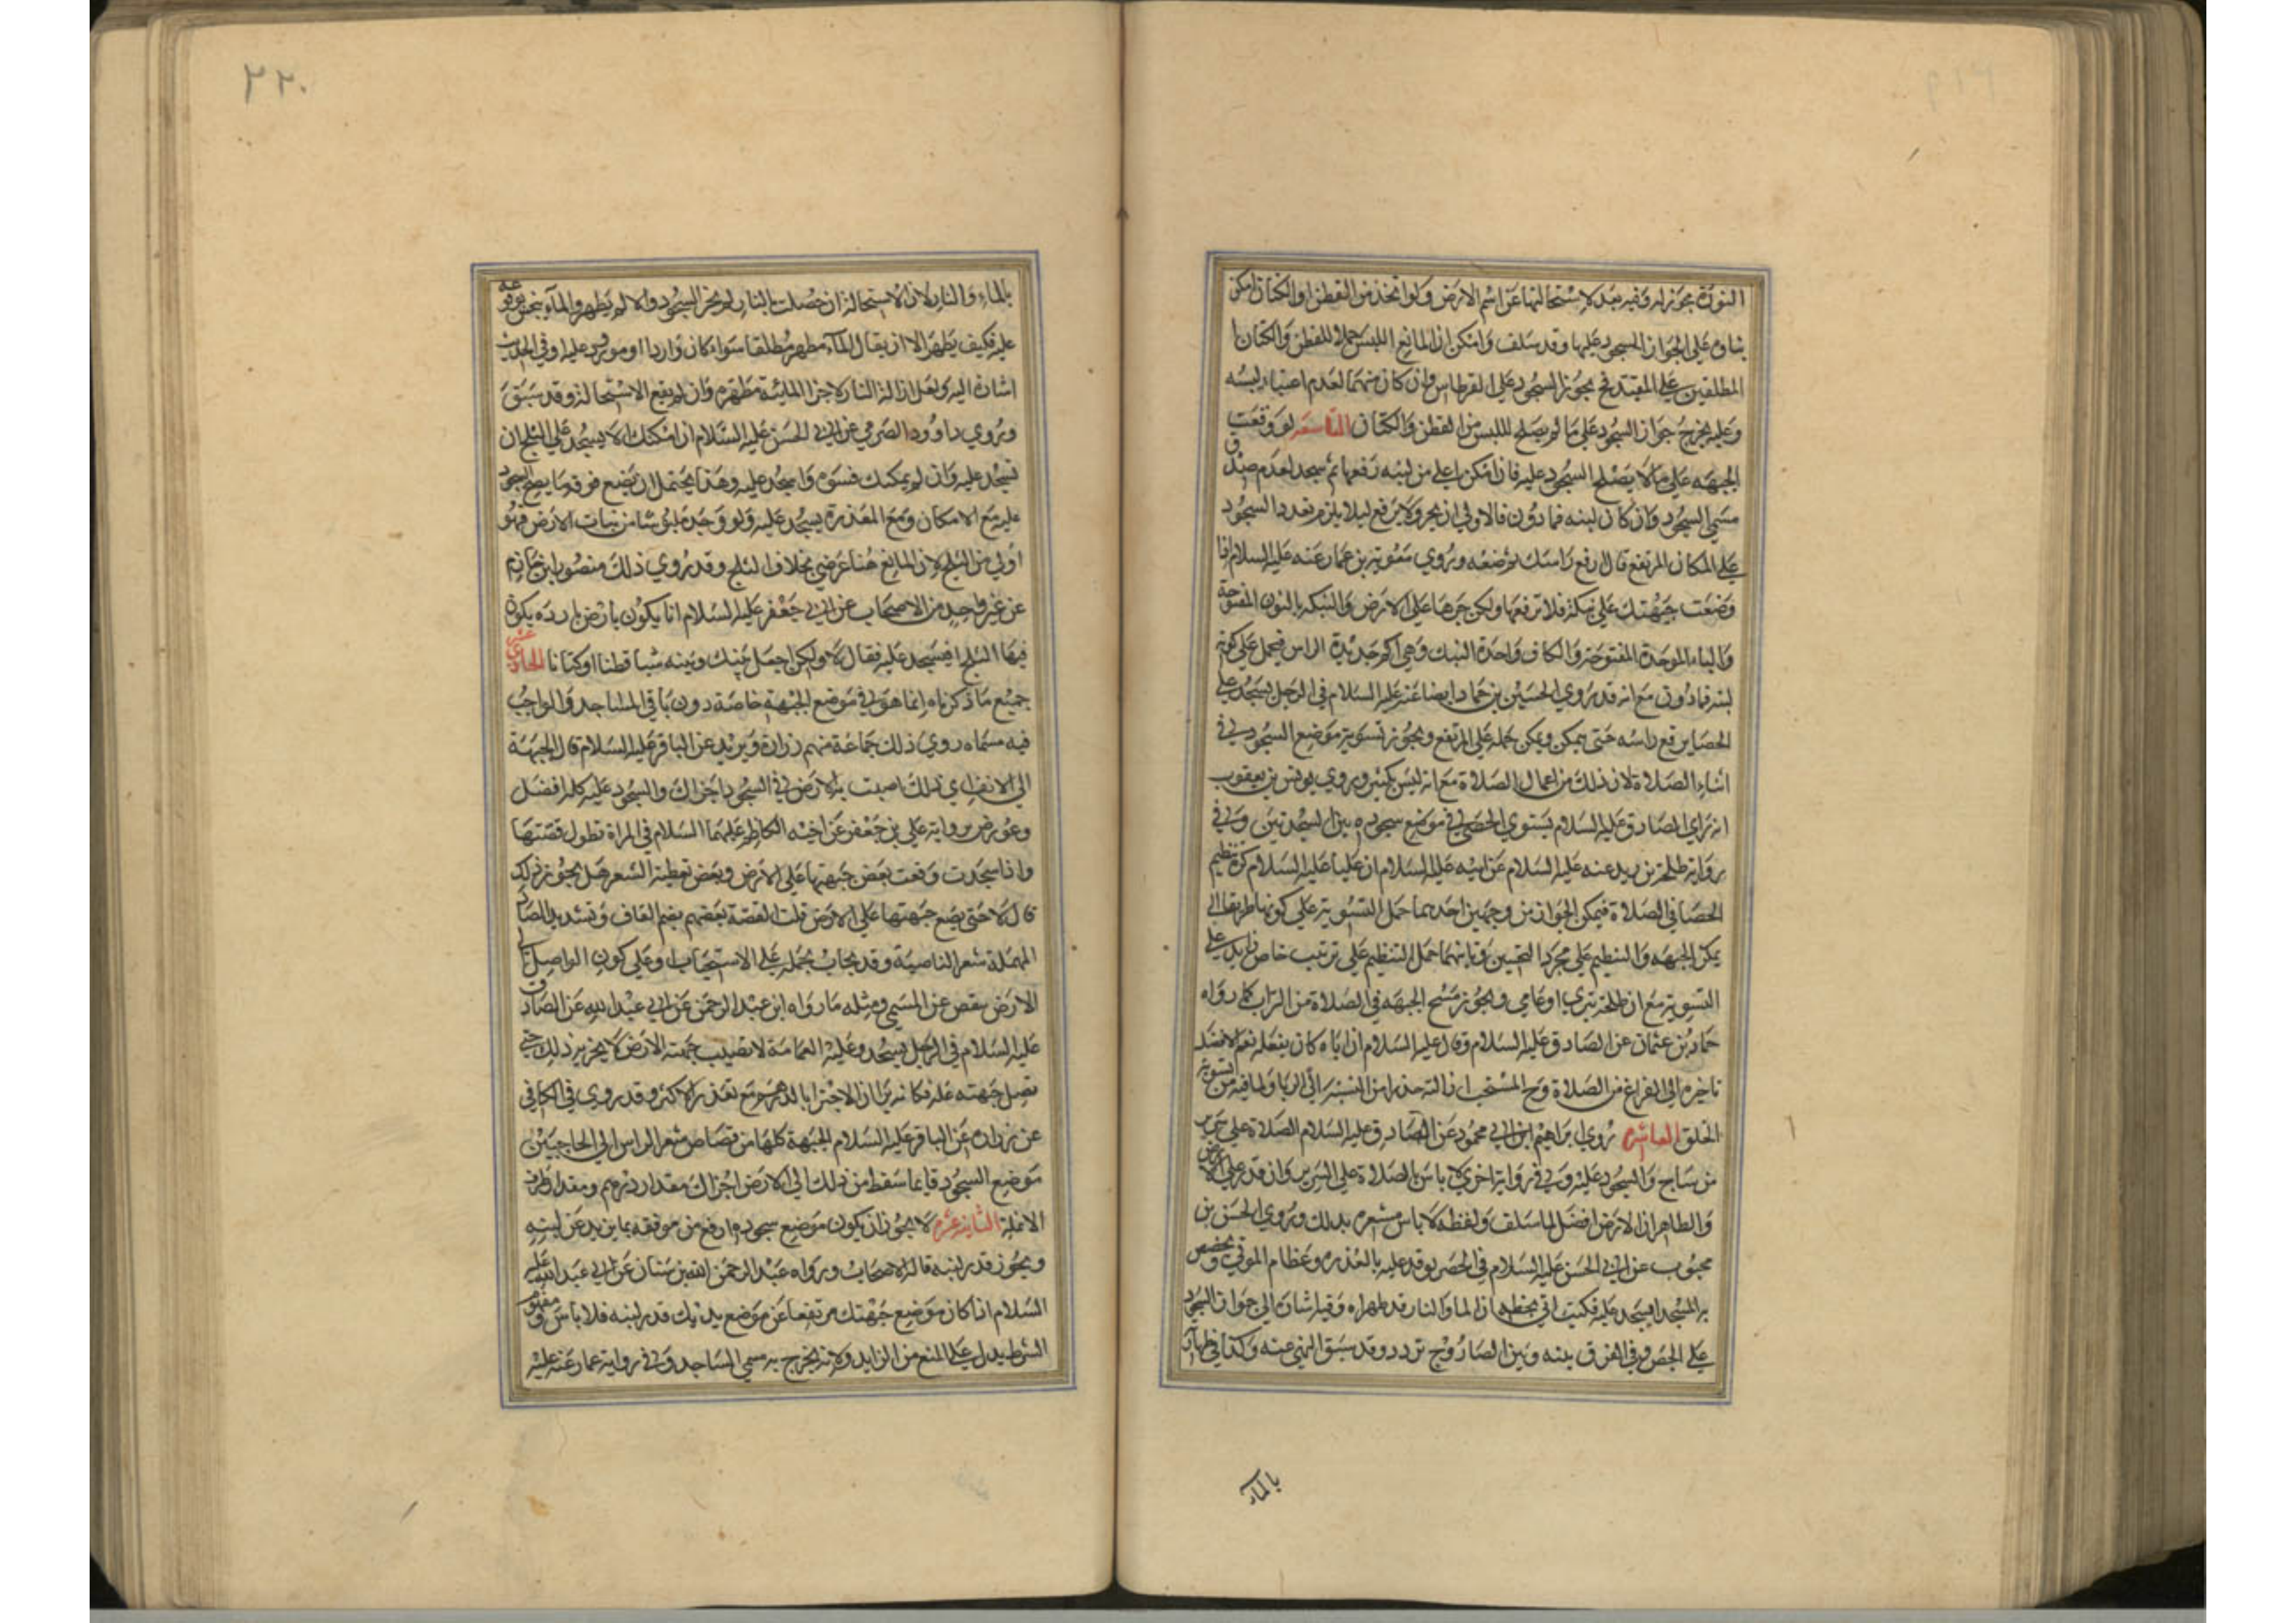 النورة مجوز له وفيه بعد لاستحالتها عن اسم الارض ولو اتخذ من القطن او الكتان امكن
بناوه على الجواز السجود عليها وقد سلف وامكن ان المانع اللبس حملا للقطن والكتان
المطلقين على المقيد فح يجوز السجود على القرطاس وان كان منهما لعدم اعتياد لبسه
وعليه يخرج جواز السجود على ما لم يصلح لللبس من القطن والكتان التاسعه لو وقعت
الجبهه على ما لا يصلح السجود عليه فان امكن اعلى من لبنه رفعها ثم سجد لعدم صدق
مسمى السجود وان كان لبنه فما دون فالاولى ان يجر ولا يرفع ليلا يلزم تعدد السجود
على المكان المرتفع قال ارفع راسك ثم ضعه وروي معوية بن عمار عنه عليه السلام اذا
وضعت جبهتك على نبكة فلا ترفعها ولكن جرها على الارض والنبكه بالنون المفتوحة
والباء الموحدة المفتوحة والكاف واحدة النبك وهي اكم حديدة الراس فيحمل على كونه
لبنه فما دون مع انه قد روي الحسين بن حماد ايضا عنه عليه السلام في الرجل يسجد على
الحصا يرفع راسه حتى يمكن ويمكن حمله على المرتفع ويجوز تسوية موضع السجود في
اثناء الصلاة لان ذلك من اعمال الصلاة مع انه ليس بكثير وروي يونس بن يعقوب
انه راي الصادق عليه السلام يستوي الحصى في موضع سجوده بين السجدتين وفي
رواية طلحة بن زيد عنه عليه السلام عن ابيه عليه السلام ان عليا عليه السلام كره تنظيم
الحصا في الصلاة فيمكن الجواز من وجهين احدهما حمل التسوية على كونها طريقا الى
يمكن الجبهه والتنظيم على مجرد التحسين وثانيهما حمل التنظيم على ترتيب خاص زايد على
التسوية مع ان طلحة بتري او عامي ويجوز مسح الجبهه في الصلاة من التراب كما رواه
حماد بن عثمان عن الصادق عليه السلام وقال عليه السلام ان اباه كان يفعله نعم الافضل
تاخيره الى الفراغ من الصلاة وح المستحب ازالته حذرا من النسبة الى الريا ولما فيه من تسوية
الخلق العاشره روي ابراهيم ابن ابي محمود عن الصادق عليه السلام الصلاة على سرير
من ساج والسجود عليه وفي رواية اخرى لا باس بالصلاة على السرير وان قدر على الارض
والظاهر ان الارض افضل لما سلف ولفظه لا باس مشعره بذلك وروي الحسن بن
محبوب عن ابي الحسن عليه السلام في الجص يوقد عليه بالعذره وعظام الموتى ويجصص
به المسجد ايسجد عليه فكتب الي بخطه ان الما والنار قد طهراه وفيه اشارة الى جواز السجود
على الجص وفي الفرق بينه وبين الصاروج تردد وقد سبق النهي عنه وكذا في طهارته
بالماء
٢٢٠
بالماء والنار لان الاستحالة ان حصلت بالنار لم يجز السجود والا لم يطهر والماء ينجس بوقوعه
عليه فكيف يطهر الا ان يقال الماء مطهر مطلقا سواء كان واردا او مورود عليه وفي الحديث
اشارة اليه ولعل ازالة النار لاجزا الميتة مطهرة وان لم يقع الاستحالة وقد سبق
وروي داوود الصرمي عن ابي الحسن عليه السلام ان امكنك الا يسجد على الثلج ان
تسجد عليه وان لم يمكنك فسوه واسجد عليه وهذا يحتمل ان يضع فوقه ما يصح السجود
عليه مع الامكان ومع المعذرة يسجد عليه ولو وجد ملبوسا من نبات الارض فهو
اولى من الثلج لان المانع هنا عرضي بخلاف الثلج وقد روي ذلك منصور بن حازم
عن غير واحد من الاصحاب عن ابي جعفر عليه السلام انا يكون بارض باردة يكون
فيها الثلج افيسجد عليه فقال لا ولكن اجعل بينك وبينه شيا قطنا او كتانا الحادي عشر
جميع ما ذكرناه انما هو في موضع الجبهة خاصة دون باقي المساجد والواجب
فيه مسماه روي ذلك جماعة منهم زرارة وبريد عن الباقر عليه السلام قال الجبهة
الى الانف اي ذلك اصبت به الارض في السجود اجزاك والسجود عليه كله افضل
وعورض برواية علي بن جعفر عن اخيه الكاظم عليهما السلام في المراة تطول قصتها
واذا سجدت وقعت بعض جبهتها على الارض وبعض تعطية الشعر هل يجوز ذلك
قال لا حتى يضع جبهتها على الارض قلت القصة بعضهم بضم القاف وتشديد الصاد
المهملة شعر الناصية وقد يجاب بحمله على الاستحباب او على كون الواصل الى
الارض ينقص عن المسمى ومثله ما رواه ابن عبد الرحمن عن ابي عبد الله عن الصادق
عليه السلام في الرجل يسجد وعليه العمامة لا تصيب جبهته الارض لا يجزيه ذلك حتى
تصل جبهته عليه فكانه يرى ان الاجتزا بالدرهم مع تعذر الاكثر وقد روي في الكافي
عن زراره عن الباقر عليه السلام الجبهة كلها من قصاص شعر الراس الى الحاجبين
موضع السجود فايما سقط من ذلك الى الارض اجزاك مقدار درهم ومقدار طرف
الانملة الثانية عشره لا يجوز ان يكون موضع سجوده ارفع من موقفه بما يزيد عن لبنه
ويجوز قدر لبنه قاله الاصحاب ورواه عبد الرحمن عبد الله بن سنان عن ابي عبد الله عليه
السلام اذا كان موضع جبهتك مرتفعا عن موضع يديك قدر لبنه فلا باس ومفهوم
الشرط يدل على المنع من الزايد ولانه يخرج به مسمى الساجد وفي رواية عمار عنه عليه